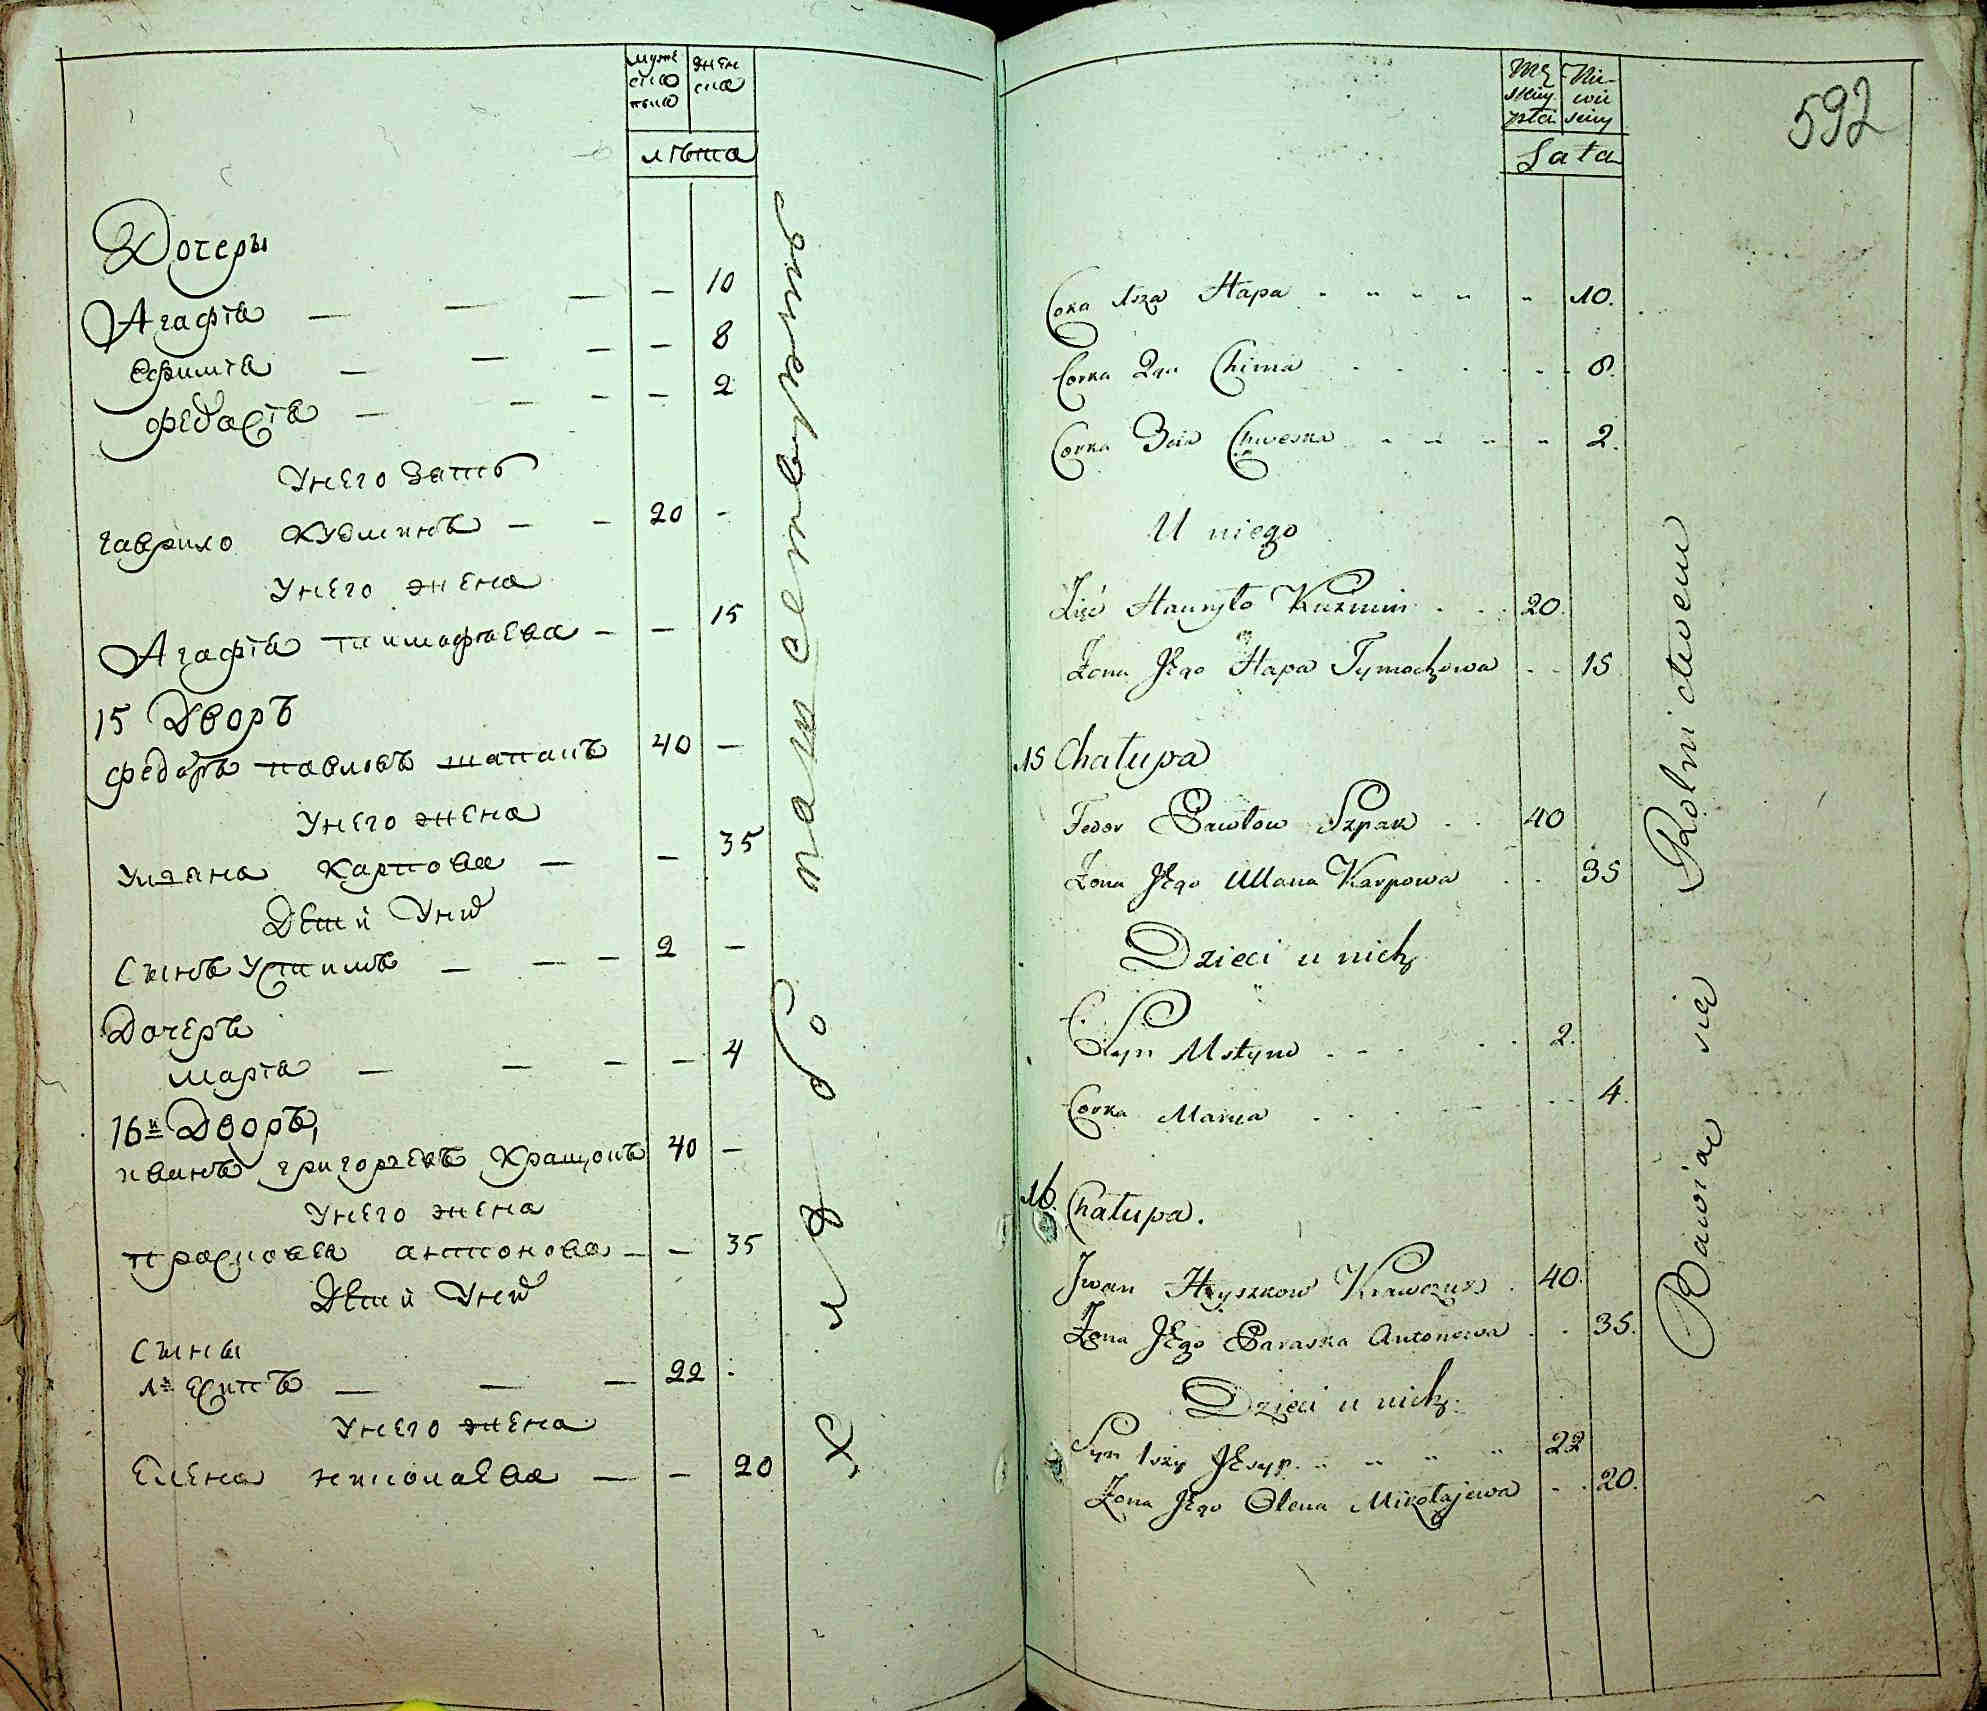 муже
ска
пола
жен
ска
лѣта
Дочеры
Агафїа — — — — 10
Ефимїа — — — — 8
федосїа — — — — 2
Унего зать
гаврило Кузминъ — — 20 -
Унего жена
Агафїа тимофѣева — — 15
15 Дворъ
федоръ павловъ шпакъ 40 —
Унего жена
Уляна Карпова — — 35
Дѣти Унихъ
Сынъ Устимъ — — — 2 —
Дочеръ
марїа — — — — 4
16й Дворъ,
иванъ григорьевъ Кравцокъ 40 —
Унего жена
прасковїа антонова — — 35
Дѣти Унихъ
Сыны
1й Есипъ — — — 22 -
Унего жена
Елена николаева — — 20
хлебопашествуютъ
592
Mę
skiey
płci
Nie-
wie
sciey
Lata
Corka 1sza Hapa 10.
Corka 2ga Chima 8.
Corka 3cia Chweska 2.
U niego
Zięć Hauryło Kuzmin 20.
Żona Jego Hapa Tymochowa 15
15 Chałupa
Fedor Pawłow Szpak 40
Żona Jego Ullana Karpowa 35
Dzieci u nich
Syn Ustym 2.
Corka Marya 4.
16. Chałupa.
Jwan Hryszkow Krawczuk 40.
Żona Jego Paraska Antonowa 35.
Dzieci u nich.
Syn 1szy Jesyp 22
Żona Jego Olena Mikołajewa 20.
Bawiąc się Rolnictwem